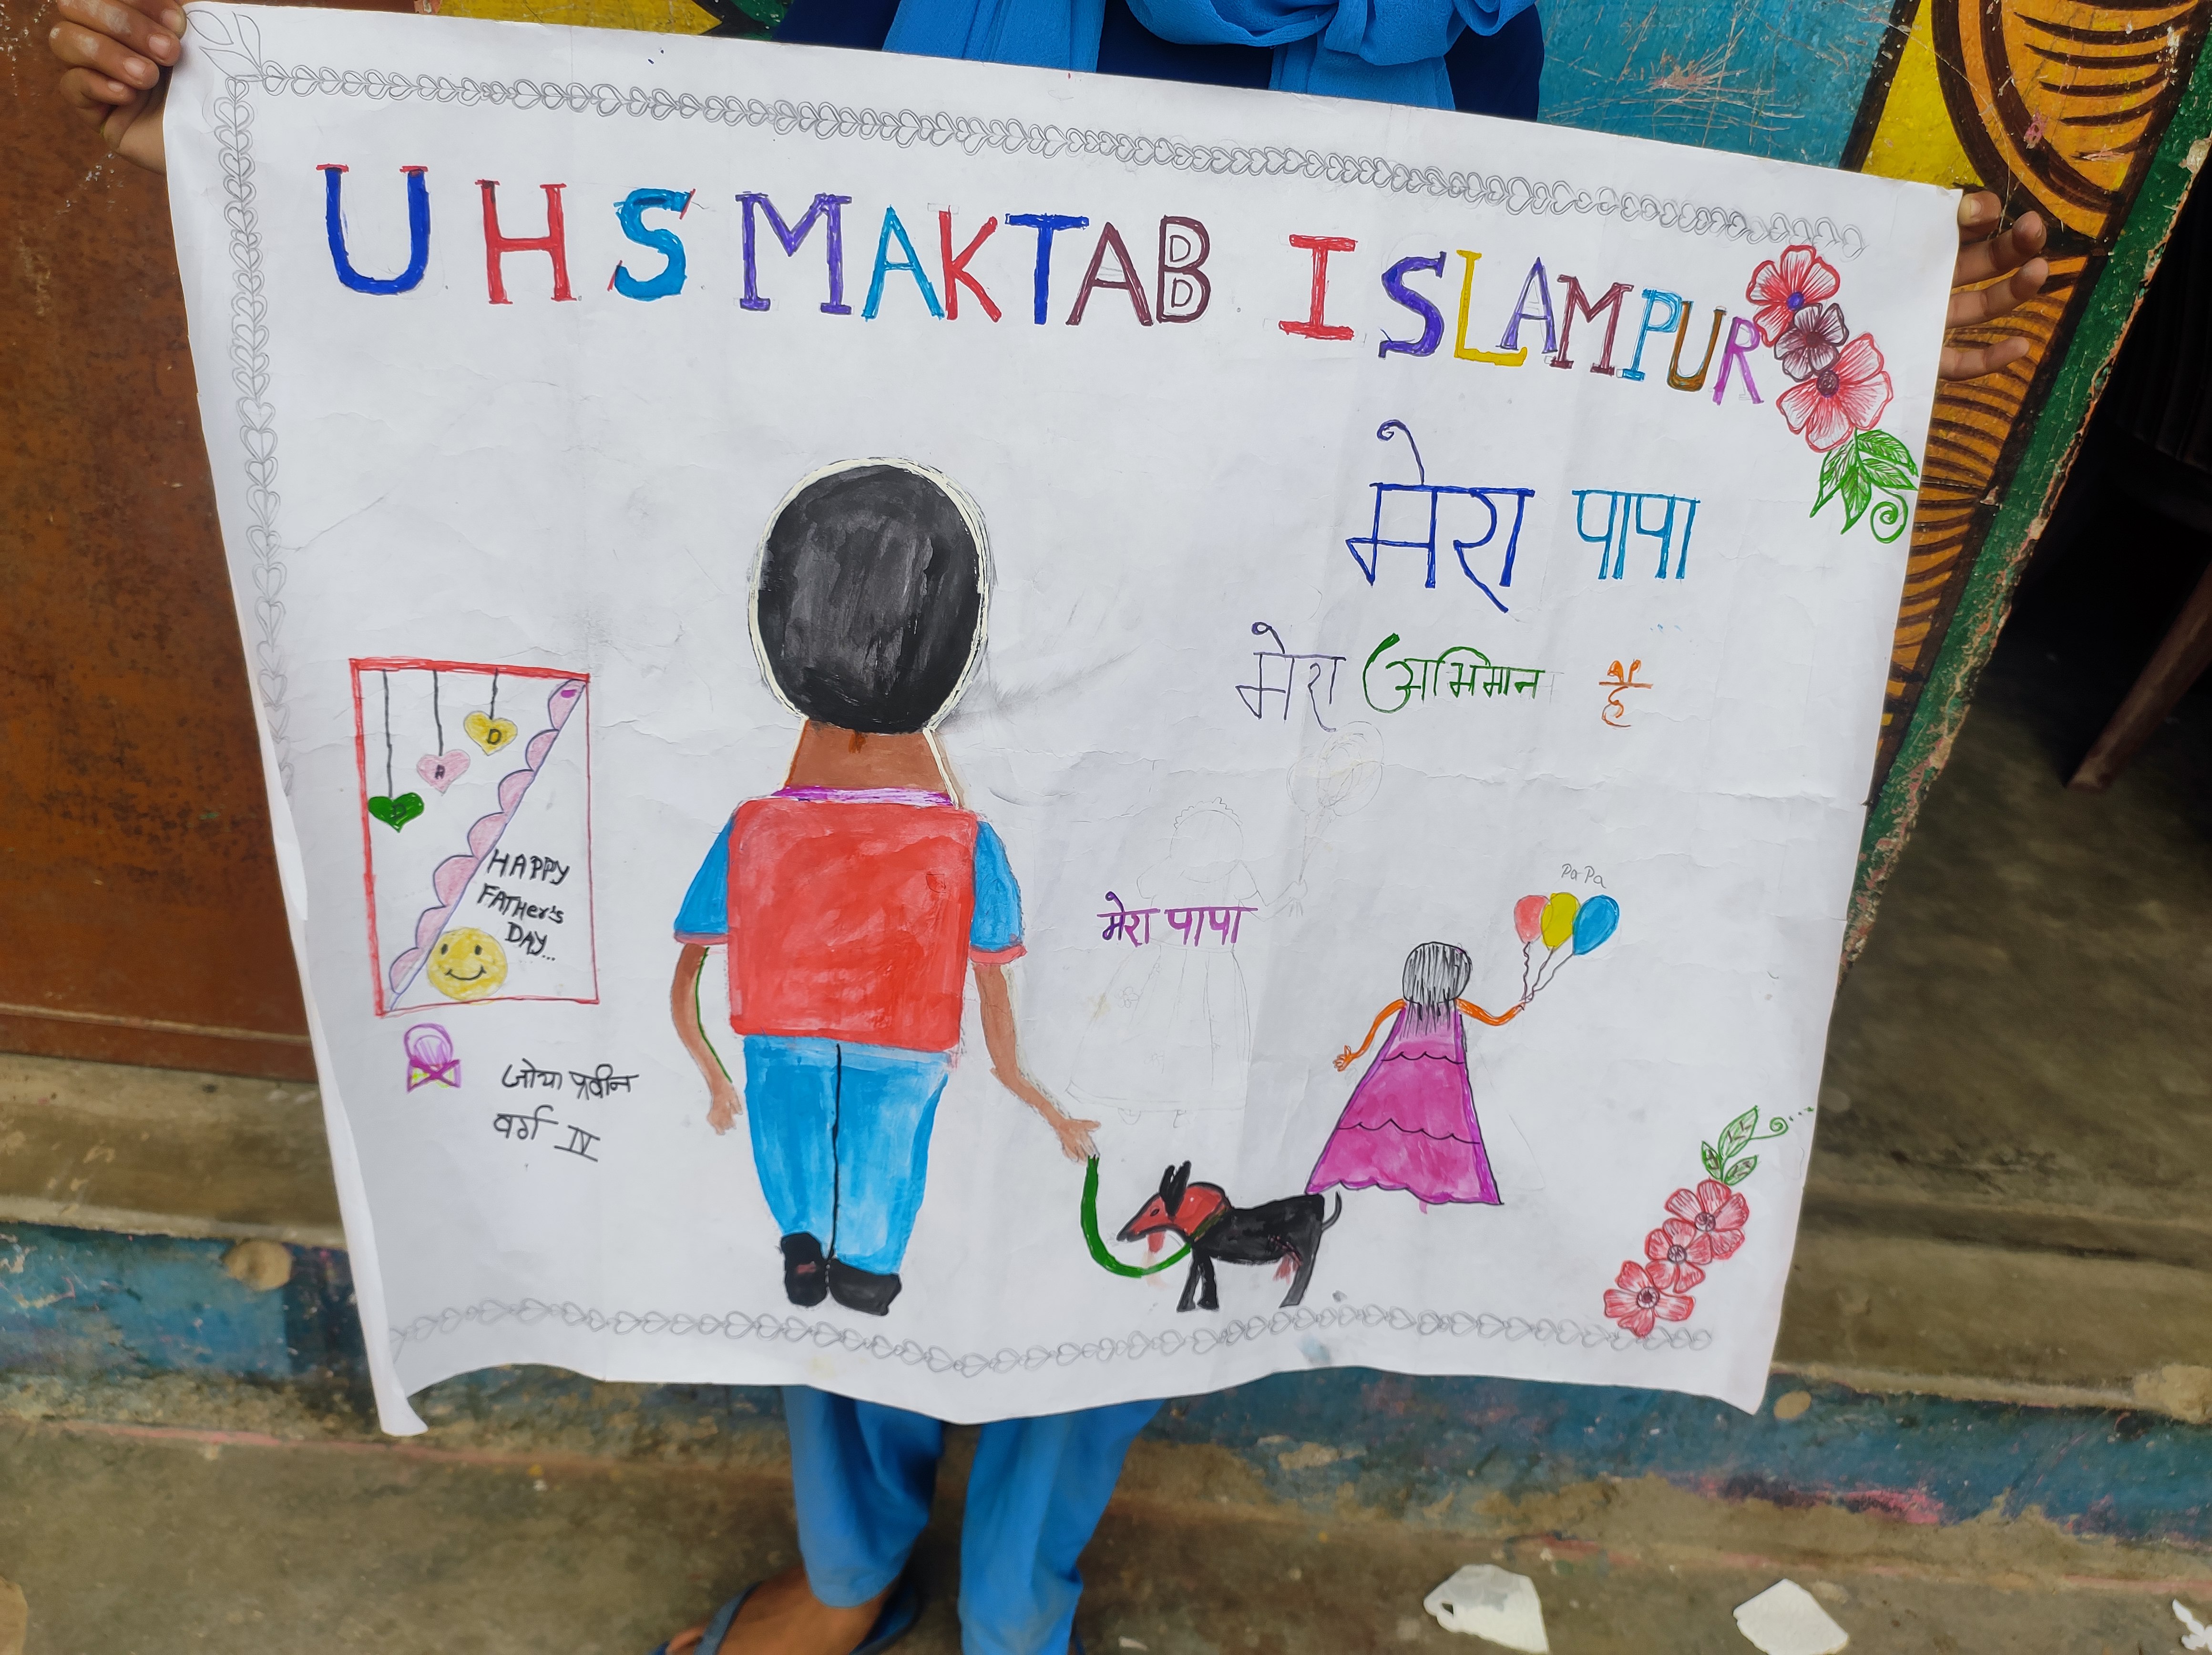 UHS MAKTAB ISLAMPUR
मेरा पापा
मेरा अभिमान है
D
A
D
HAPPY
FATHer's
DAY...
मेरा पापा
PaPa
जोया प्रवीन
वर्ग IV